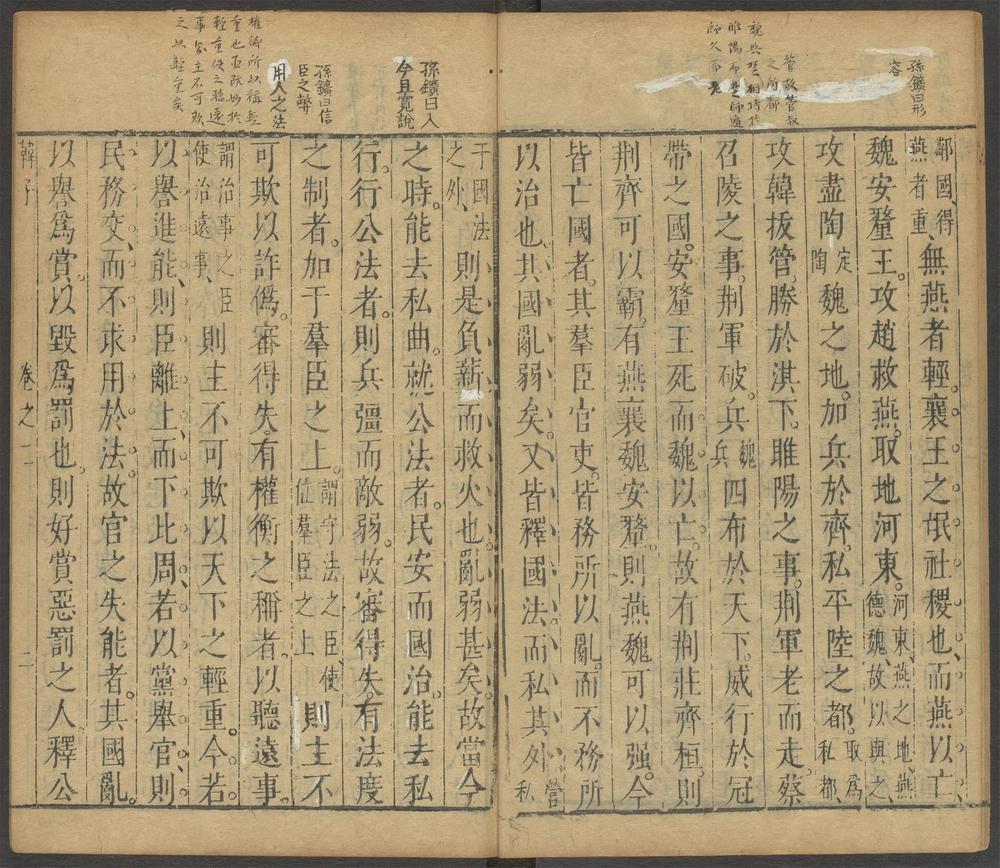 孫鑛曰形
容
管故管叔
之所都
魏與楚相持於
睢陽而楚師遁
師久而老
鄰國得
燕者重
無燕者輕襄王之氓社稷也而燕以亡
魏安釐王攻趙救燕取地河東
河東燕之地燕
德魏故以與之
攻盡陶
定
陶
魏之地加兵於齊私平陸之都
取爲
私都
攻韓拔管勝於淇下睢陽之事荆軍老而走蔡
召陵之事荆軍破兵
魏
兵
四布於天下威行於冠
帶之國安釐王死而魏以亡故有荆莊齊桓則
荆齊可以霸有燕襄魏安釐則燕魏可以强今
皆亡國者其羣臣官吏皆務所以亂而不務所
以治也其國亂弱矣又皆釋國法而私其外
營
私
孫鑛曰入
今且寬說
孫鑛曰信
臣之弊
用人之法
權衡所以稱輕
重也臣既妙於
輕重使之聽遠
事則主不可欺
之以輕重矣
于國法
之外
則是負薪而救火也亂弱甚矣故當今
之時能去私曲就公法者民安而國治能去私
行行公法者則兵彊而敵弱故審得失有法度
之制者加于羣臣之上
謂守法之臣使
位羣臣之上
則主不
可欺以詐僞審得失有權衡之稱者以聽遠事
謂治事之臣
使治遠事
則主不可欺以天下之輕重今若
以譽進能則臣離上而下比周若以黨舉官則
民務交而不求用於法故官之失能者其國亂
以譽爲賞以毀爲罰也則好賞惡罰之人釋公
韓子
卷之一
二